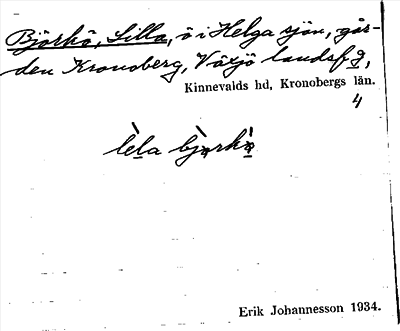 Björkö, Lilla, ö i Helga sjön, går-
den Kronoberg, Växjö landsfg,
Kinnevalds hd, Kronobergs län.
4
lela bjørkø
Erik Johannesson 1934.